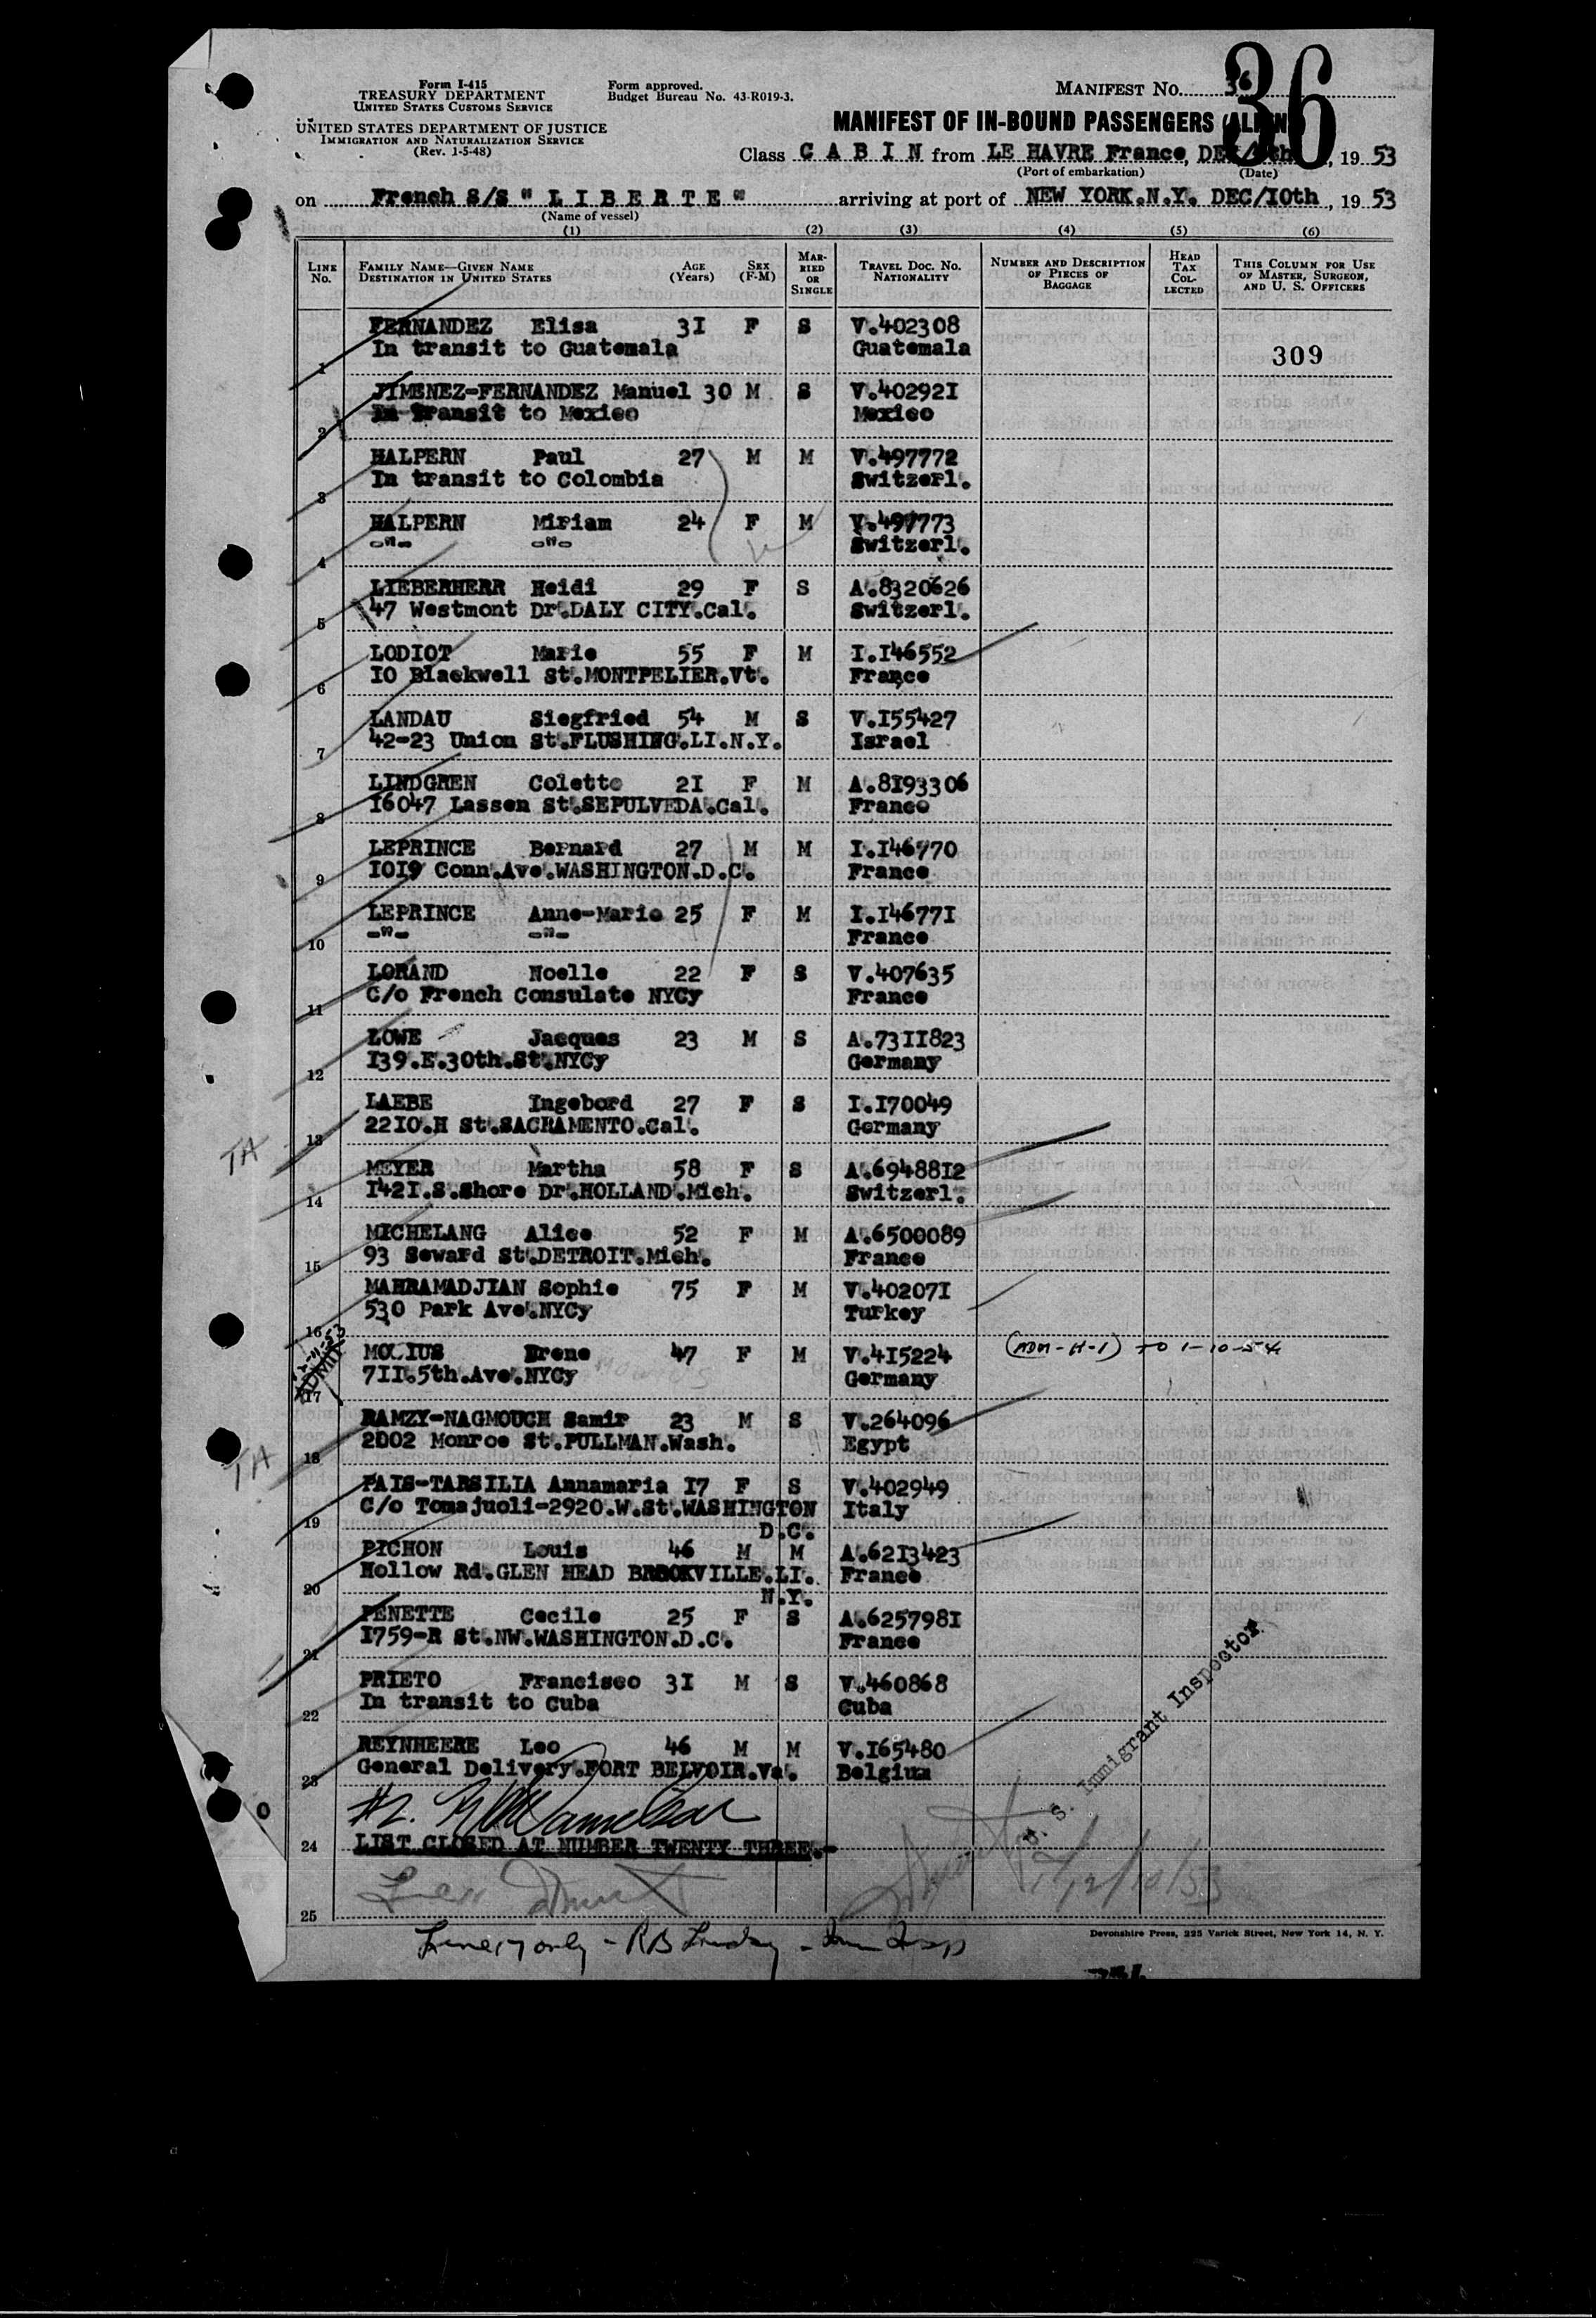 36
Form I-415
TREASURY DEPARTMENT
UNITED STATES CUSTOMS SERVICE
UNITED STATES DEPARTMENT OF JUSTICE
IMMIGRATION AND NATURALIZATION SERVICE
(Rev. 1-5-48)
Form approved.
Budget Bureau No. 43-R019-3.
MANIFEST No. 36
MANIFEST OF IN-BOUND PASSENGERS (ALIEN)
Class C A B I N from LE HAVRE France, DEC , 19 53
(Port of embarkation) (Date)
on French S/S " L I B E R T E " arriving at port of NEW YORK.N.Y. DEC/I0th , 19 53
(Name of vessel)
(1) (2) (3) (4) (5) (6)
LINE No. FAMILY NAME—GIVEN NAME DESTINATION IN UNITED STATES AGE (Years) SEX (F-M) MARRIED OR SINGLE TRAVEL DOC. NO. NATIONALITY NUMBER AND DESCRIPTION OF PIECES OF BAGGAGE HEAD TAX COLLECTED THIS COLUMN FOR USE OF MASTER, SURGEON, AND U. S. OFFICERS
FERNANDEZ Elisa 3I F S V.402308
1 In transit to Guatemala Guatemala 309
JIMENEZ-FERNANDEZ Manuel 30 M S V.40292I
2 In transit to Mexico Mexico
HALPERN Paul 27 M M V.497772
3 In transit to Colombia Switzerl.
HALPERN Miriam 24 F M V.497773
4 -"- -"- Switzerl.
LIEBERHERR Heidi 29 F S A.8320626
5 47 Westmont Dr.DALY CITY.Cal. Switzerl.
LODIOT Marie 55 F M I.I46552
6 I0 Blackwell St.MONTPELIER.Vt. France
LANDAU Siegfried 54 M S V.I55427
7 42-23 Union St.FLUSHING.LI.N.Y. Israel
LINDGREN Colette 2I F M A.8I93306
8 I6047 Lassen St.SEPULVEDA.Cal. France
LEPRINCE Bernard 27 M M I.I46770
9 I0I9 Conn.Ave.WASHINGTON.D.C. France
LEPRINCE Anne-Marie 25 F M I.I4677I
10 -"- -"- France
LORAND Noelle 22 F S V.407635
11 C/o French Consulate NYCy France
LOWE Jacques 23 M S A.73II823
12 I39.E.30th.St.NYCy Germany
LAEBE Ingebord 27 F S I.I70049
13 22I0.H St.SACRAMENTO.Cal. Germany
TA
MEYER Martha 58 F S A.69488I2
14 I42I.S.Shore Dr.HOLLAND.Mich. Switzerl.
MICHELANG Alice 52 F M A.6500089
15 93 Seward St.DETROIT.Mich. France
MAHRAMADJIAN Sophie 75 F M V.40207I
16 530 Park Ave.NYCy Turkey
MOLIUS Erene 47 F M V.4I5224 (ADM-H-1) TO 1-10-54
17 7II.5th.Ave.NYCy Germany
ADMIT
RAMZY-NAGMOUCH Samir 23 M S V.264096
18 2002 Monroe St.PULLMAN.Wash. Egypt
TA
PAIS-TARSILIA Annamaria I7 F S V.402949
19 C/o Tomajuoli-2920.W.St.WASHINGTON D.C. Italy
PICHON Louis 46 M M A.62I3423
20 Hollow Rd.GLEN HEAD BROOKVILLE.LI. N.Y. France
PENETTE Cecile 25 F S A.625798I
21 I759-R St.NW.WASHINGTON.D.C. France
PRIETO Francisco 3I M S V.460868
22 In transit to Cuba Cuba
REYNHEERE Leo 46 M M V.I65480
23 General Delivery.FORT BELVOIR.Va. Belgium
U. S. Immigrant Inspector
24 LIST CLOSED AT NUMBER TWENTY THREE.-
12/10/53
25
Line 17 only -
Devonshire Press, 225 Varick Street, New York 14, N. Y.